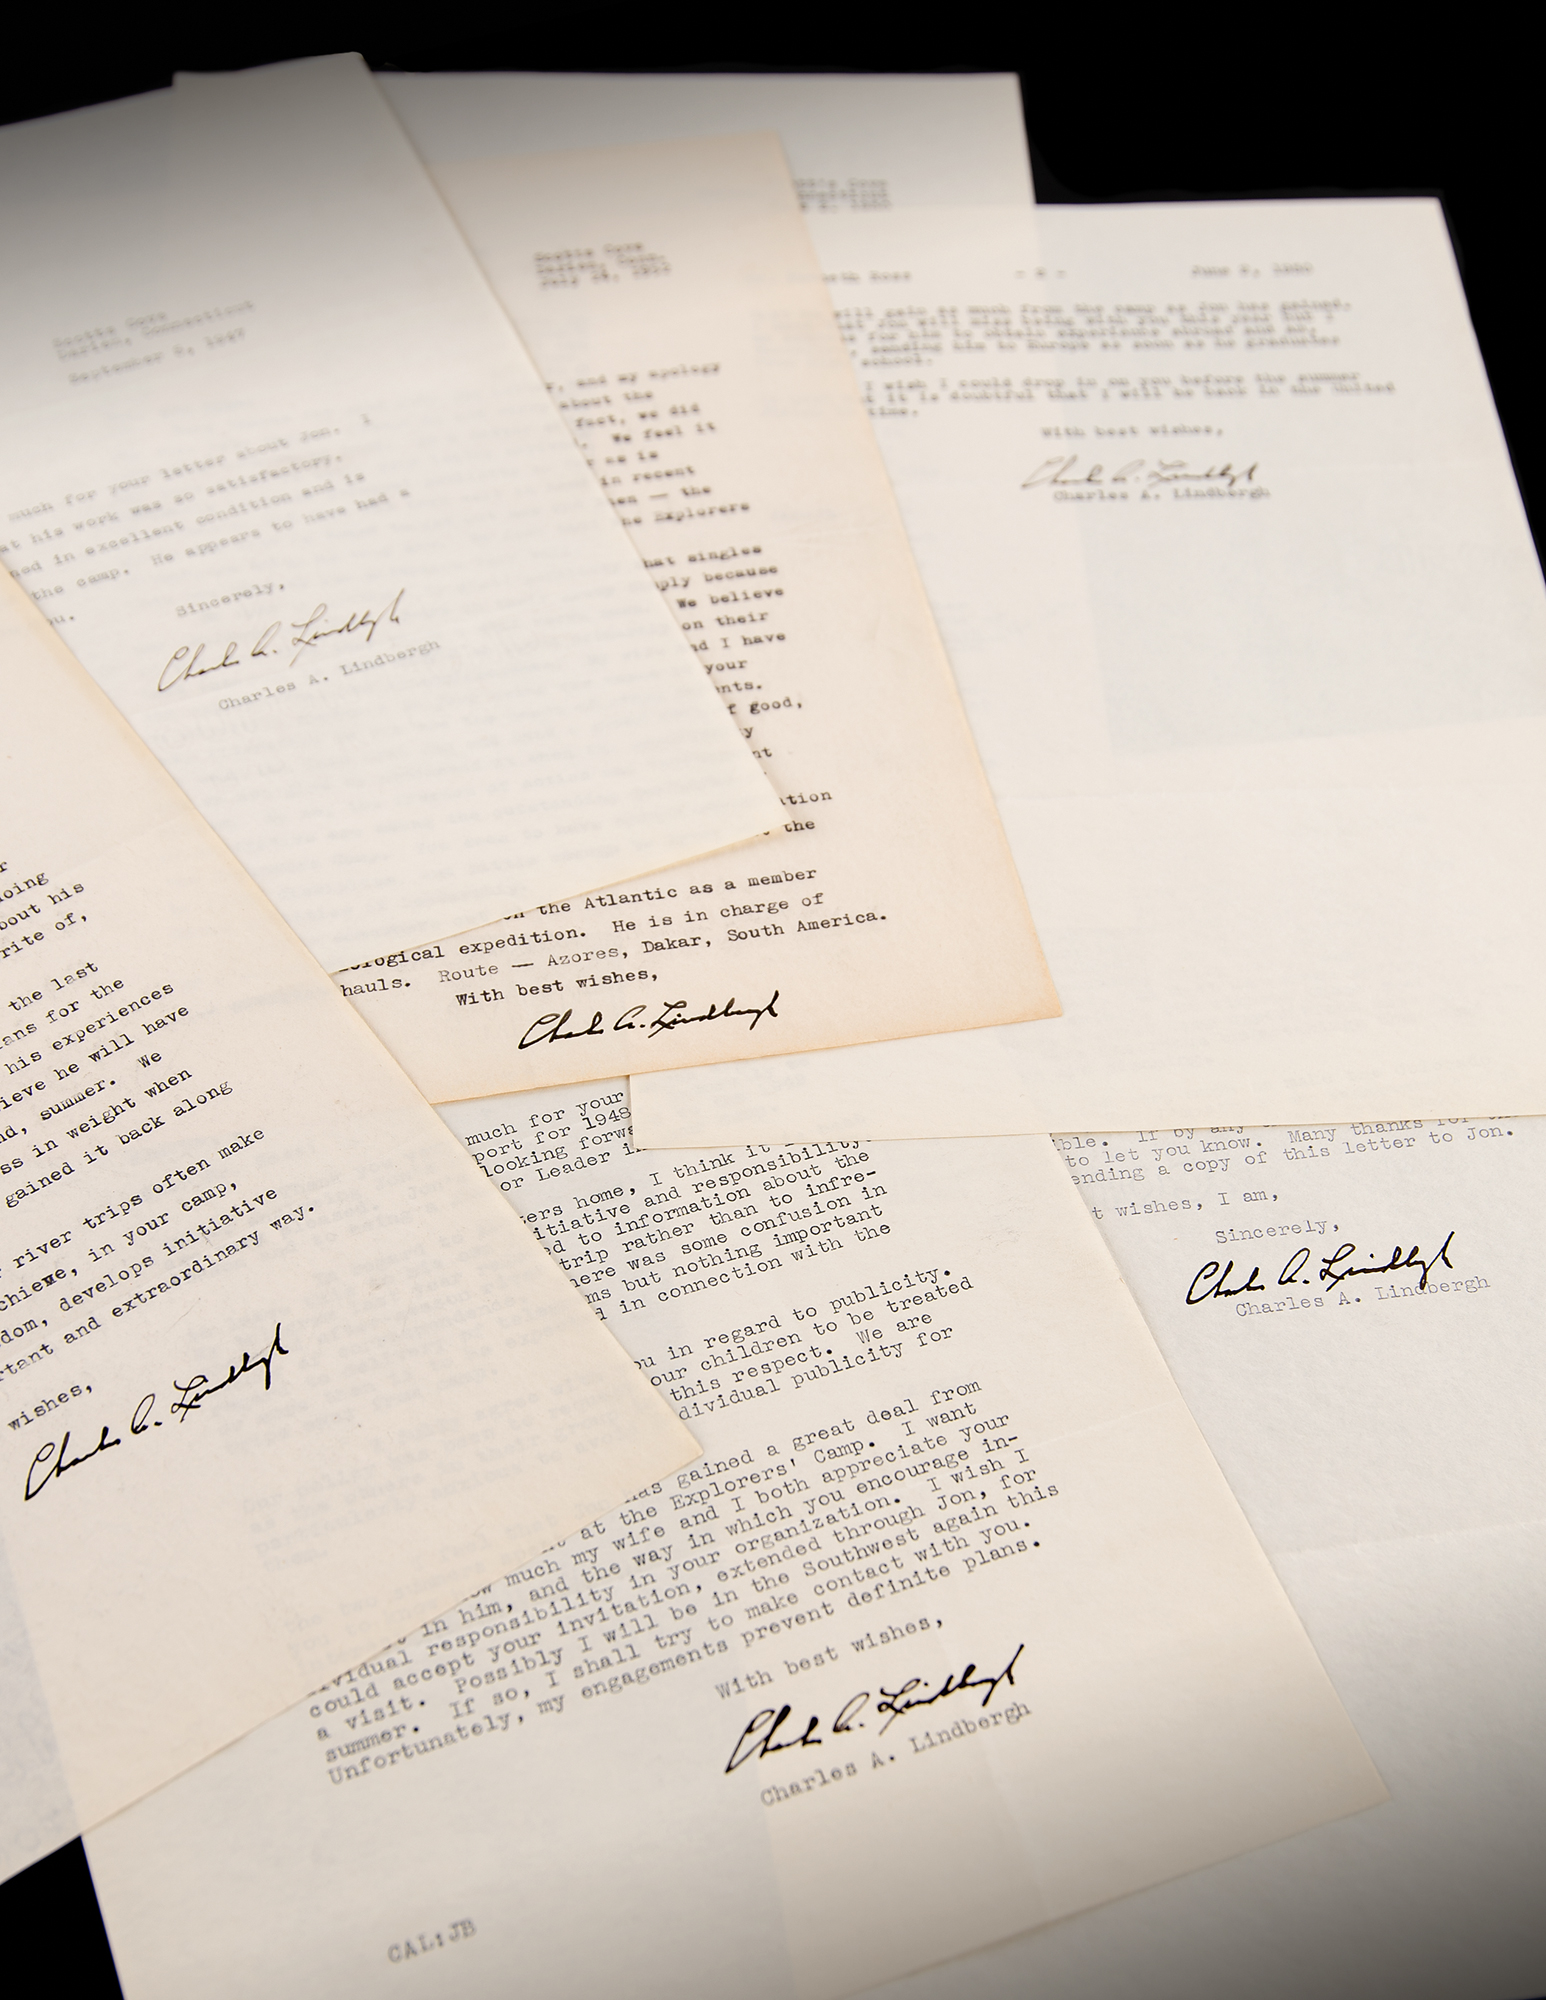 Scotts Cove
Darien, Connecticut
September 5, 1947
much for your letter about Jon. I
at his work was so satisfactory,
ned in excellent condition and is
the camp. He appears to have had a
ou.
Sincerely,
Charles A. Lindbergh
Charles A. Lindbergh
Scotts Cove
Darien, Conn.
July
, and my apology
about the
fact, we did
We feel it
as is
in recent
men — the
he Explorers
hat singles
ply because
We believe
on their
nd I have
your
nts.
f good,
y
nt
ation
the
on the Atlantic as a member
ological expedition. He is in charge of
hauls. Route — Azores, Dakar, South America.
With best wishes,
Charles A. Lindbergh
Ross
June 2, 1950
will gain as much from the camp as Jon has gained.
hat you will miss being with you this year but I
is for him to obtain experience abroad and am,
, sending him to Europe as soon as he graduates
school.
I wish I could drop in on you before the summer
it is doubtful that I will be back in the United
time.
With best wishes,
Charles A. Lindbergh
Charles A. Lindbergh
r
doing
bout his
rite of,
the last
lans for the
his experiences
ieve he will have
nd, summer. We
ss in weight when
gained it back along
river trips often make
chieve, in your camp,
dom, develops initiative
rtant and extraordinary way.
wishes,
Charles A. Lindbergh
much for your
port for 1948
looking forwa
or Leader i
ters home, I think it
itiative and responsibility
ed to information about the
trip rather than to infre-
here was some confusion in
ms but nothing important
d in connection with the
ou in regard to publicity.
our children to be treated
this respect. We are
dividual publicity for
has gained a great deal from
at the Explorers' Camp. I want
ow much my wife and I both appreciate your
t in him, and the way in which you encourage in-
ividual responsibility in your organization. I wish I
could accept your invitation, extended through Jon, for
a visit. Possibly I will be in the Southwest again this
summer. If so, I shall try to make contact with you.
Unfortunately, my engagements prevent definite plans.
With best wishes,
Charles A. Lindbergh
Charles A. Lindbergh
CAL:JB
ible. If by any
to let you know. Many thanks for
ending a copy of this letter to Jon.
t wishes, I am,
Sincerely,
Charles A. Lindbergh
Charles A. Lindbergh